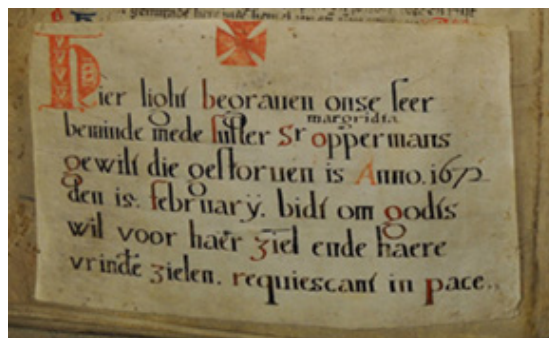 Hier light begrauen onse seer
beminde mede suster Sr margridta oppermans
gewist die gestoruen is Anno. 1672
den is. february. bidt om godts
wil voor haer ziel ende haere
vrinde zielen. requiescant in pace.